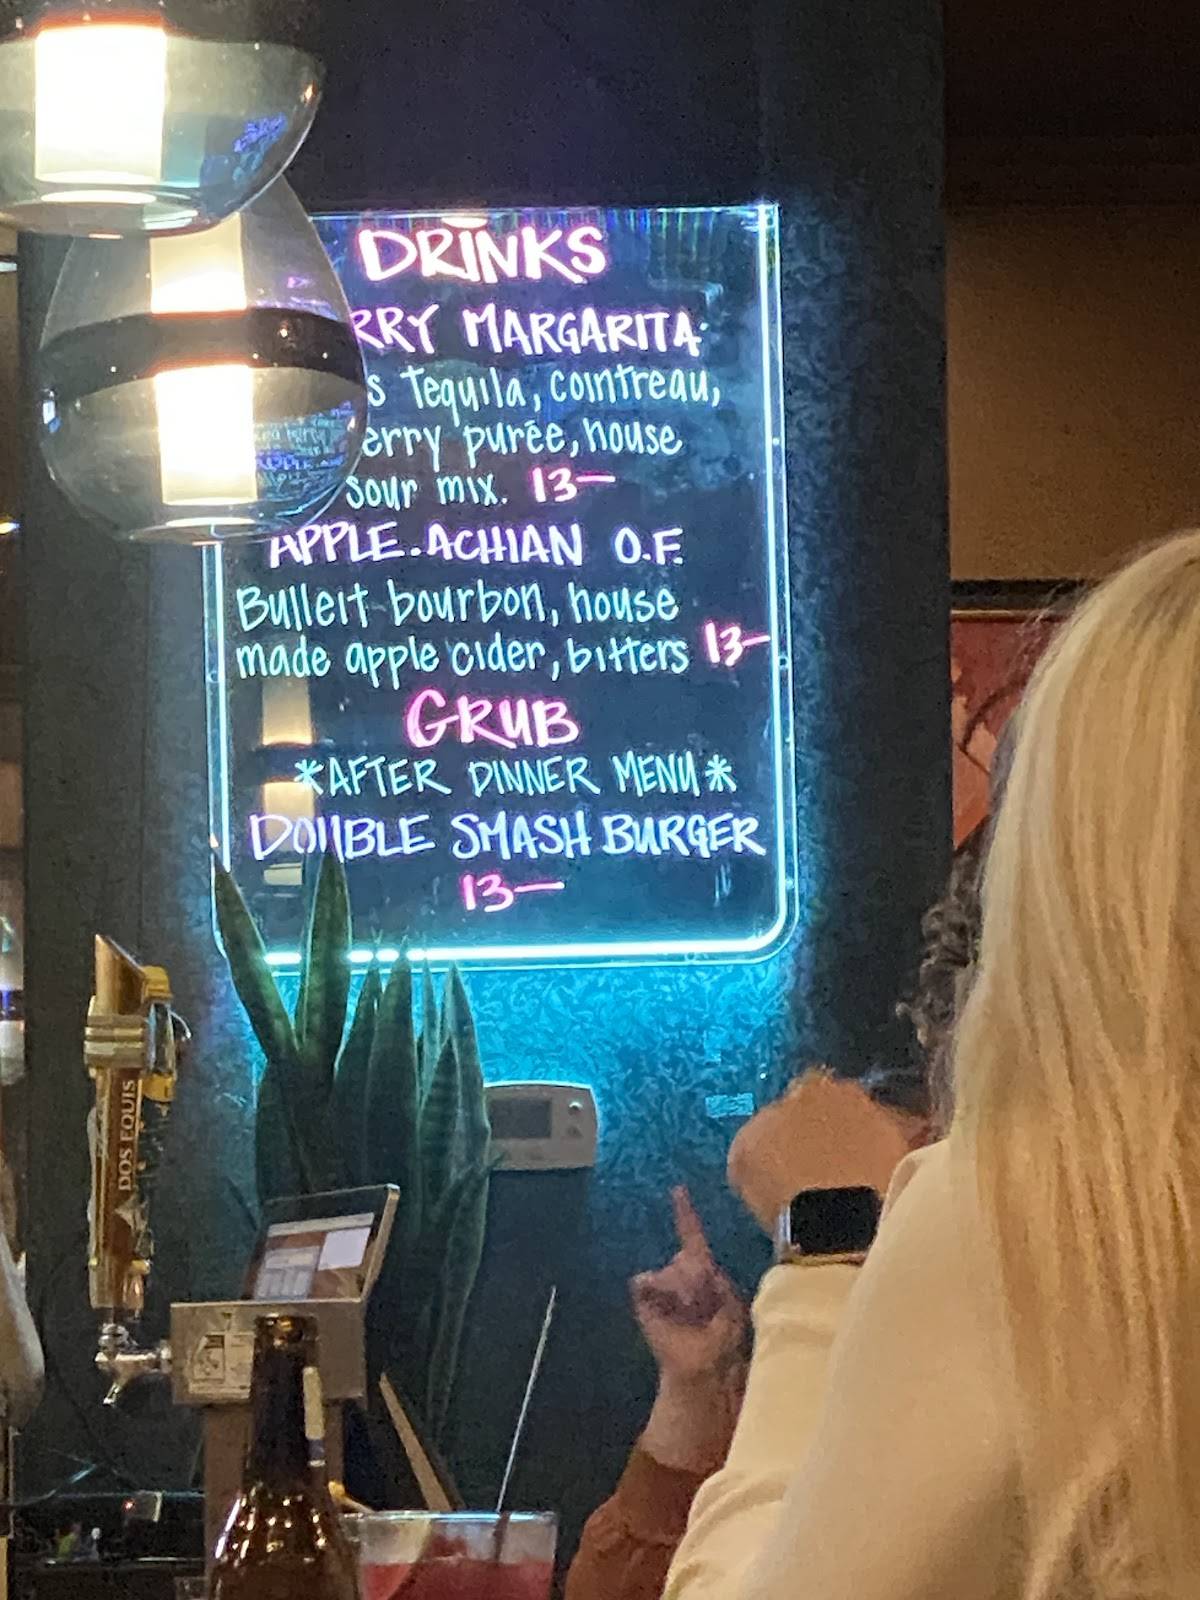 DRINKS
RRY MARGARITA
s Tequila, cointreau,
erry purée, house
sour mix. 13—
APPLE.ACHIAN O.F.
Bulleit bourbon, house
made apple cider, bitters 13—
GRUB
*AFTER DINNER MENU*
DOUBLE SMASH BURGER
13—
DOS EQUIS